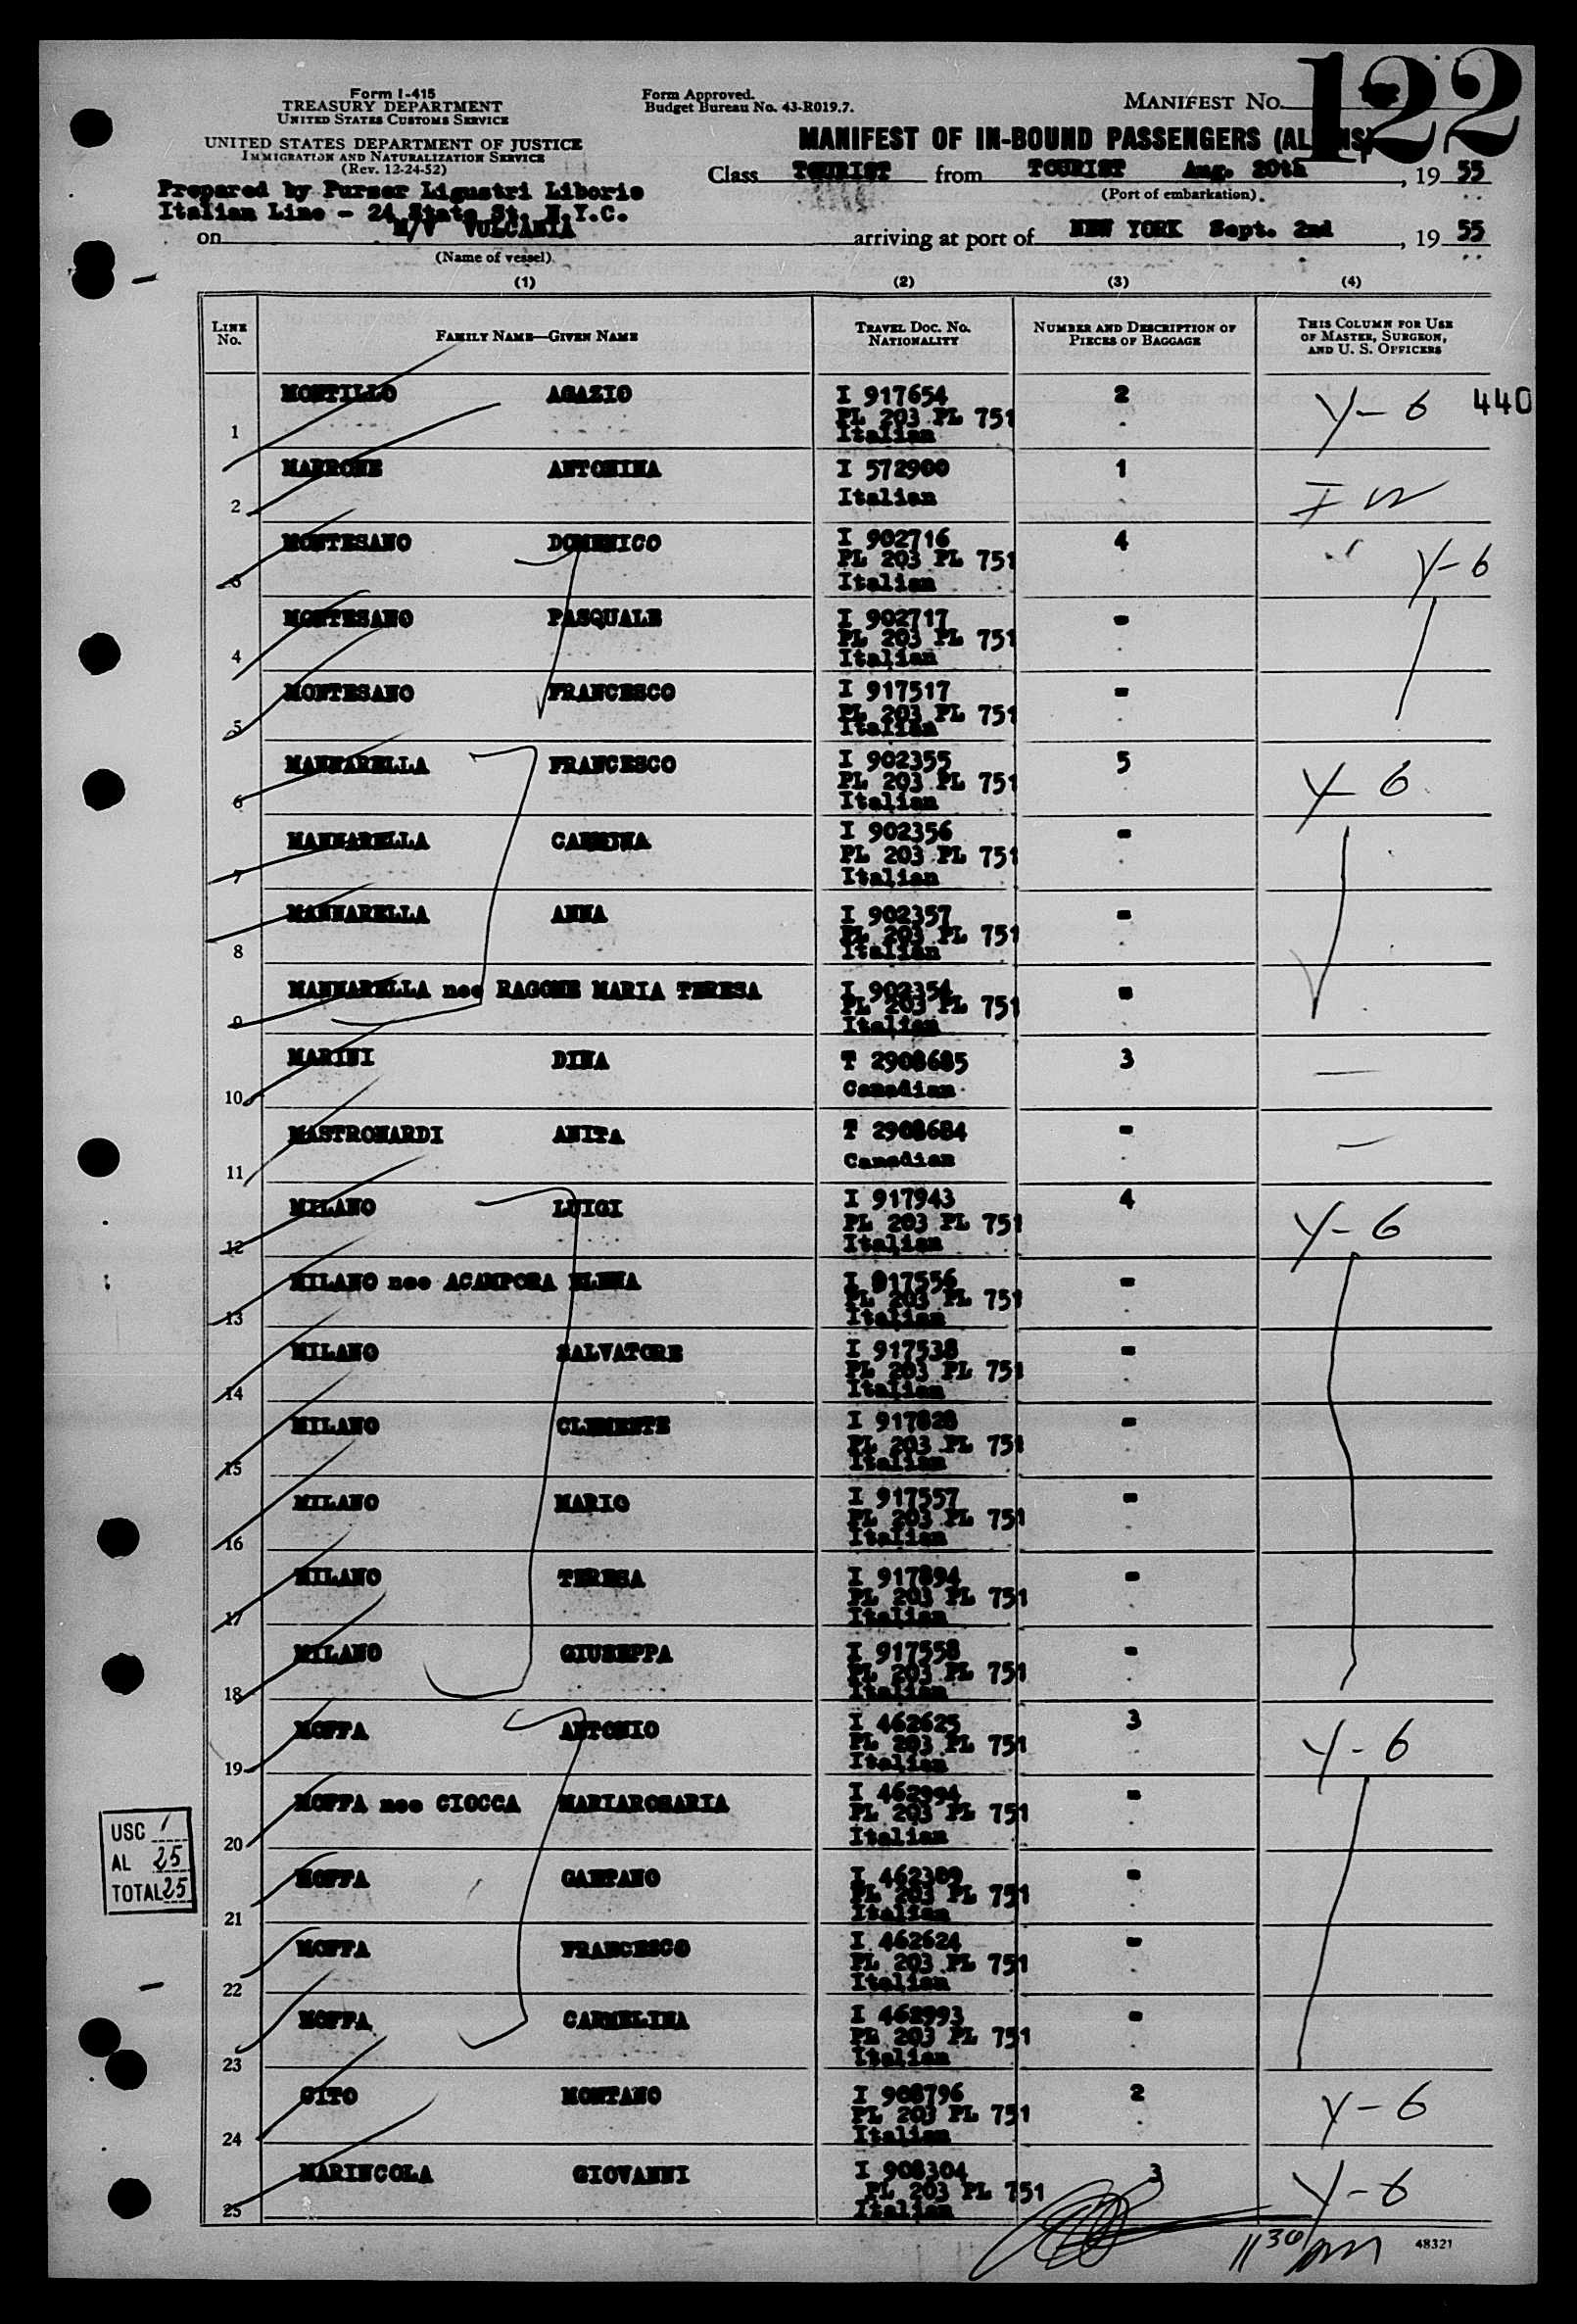 Form I-415
TREASURY DEPARTMENT
UNITED STATES CUSTOMS SERVICE
UNITED STATES DEPARTMENT OF JUSTICE
IMMIGRATION AND NATURALIZATION SERVICE
(Rev. 12-24-52)
Form Approved.
Budget Bureau No. 43-R019.7.
MANIFEST No. 122
MANIFEST OF IN-BOUND PASSENGERS (ALIENS)
Class TOURIST from TOURIST Aug. 20th, 19 55
(Port of embarkation)
Prepared by Purser Ligustri Liborio
Italian Line - 24 State St. N.Y.C.
on M/V VULCANIA arriving at port of NEW YORK Sept. 2nd, 19 55
(Name of vessel)
(1) (2) (3) (4)
LINE No. FAMILY NAME—GIVEN NAME TRAVEL DOC. No. NATIONALITY NUMBER AND DESCRIPTION OF PIECES OF BAGGAGE THIS COLUMN FOR USE OF MASTER, SURGEON, AND U. S. OFFICERS
1 MONTILLO AGAZIO I 917654 PL 203 PL 751 Italian 2 Y-6 440
2 MARRONE ANTONINA I 572900 Italian 1
3 MONTESANO DOMENICO I 902716 PL 203 PL 751 Italian 4 Y-6
4 MONTESANO PASQUALE I 902717 PL 203 PL 751 Italian -
5 MONTESANO FRANCESCO I 917517 PL 203 PL 751 Italian -
6 MANNARELLA FRANCESCO I 902355 PL 203 PL 751 Italian 5 Y-6
7 MANNARELLA CARMINA I 902356 PL 203 PL 751 Italian -
8 MANNARELLA ANNA I 902357 PL 203 PL 751 Italian -
9 MANNARELLA nee RAGONE MARIA TERESA I 902354 PL 203 PL 751 Italian -
10 MARINI DINA T 2908685 Canadian 3 —
11 MASTRONARDI ANITA T 2908684 Canadian - —
12 MILANO LUIGI I 917943 PL 203 PL 751 Italian 4 Y-6
13 MILANO nee ACAMPORA ELENA I 917556 PL 203 PL 751 Italian -
14 MILANO SALVATORE I 917538 PL 203 PL 751 Italian -
15 MILANO CLEMENTE I 917828 PL 203 PL 751 Italian -
16 MILANO MARIO I 917557 PL 203 PL 751 Italian -
17 MILANO TERESA I 917894 PL 203 PL 751 Italian -
18 MILANO GIUSEPPA I 917558 PL 203 PL 751 Italian -
19 MOFFA ANTONIO I 462625 PL 203 PL 751 Italian 3 Y-6
20 MOFFA nee CIOCCA MARIAROSARIA I 462994 PL 203 PL 751 Italian -
21 MOFFA GAETANO I 462389 PL 203 PL 751 Italian -
22 MOFFA FRANCESCO I 462624 PL 203 PL 751 Italian -
23 MOFFA CARMELINA I 462993 PL 203 PL 751 Italian -
24 GITO MONTANO I 908796 PL 203 PL 751 Italian 2 Y-6
25 MARINCOLA GIOVANNI I 908304 PL 203 PL 751 Italian 3 Y-6
USC 1
AL 25
TOTAL 25
1130
48321